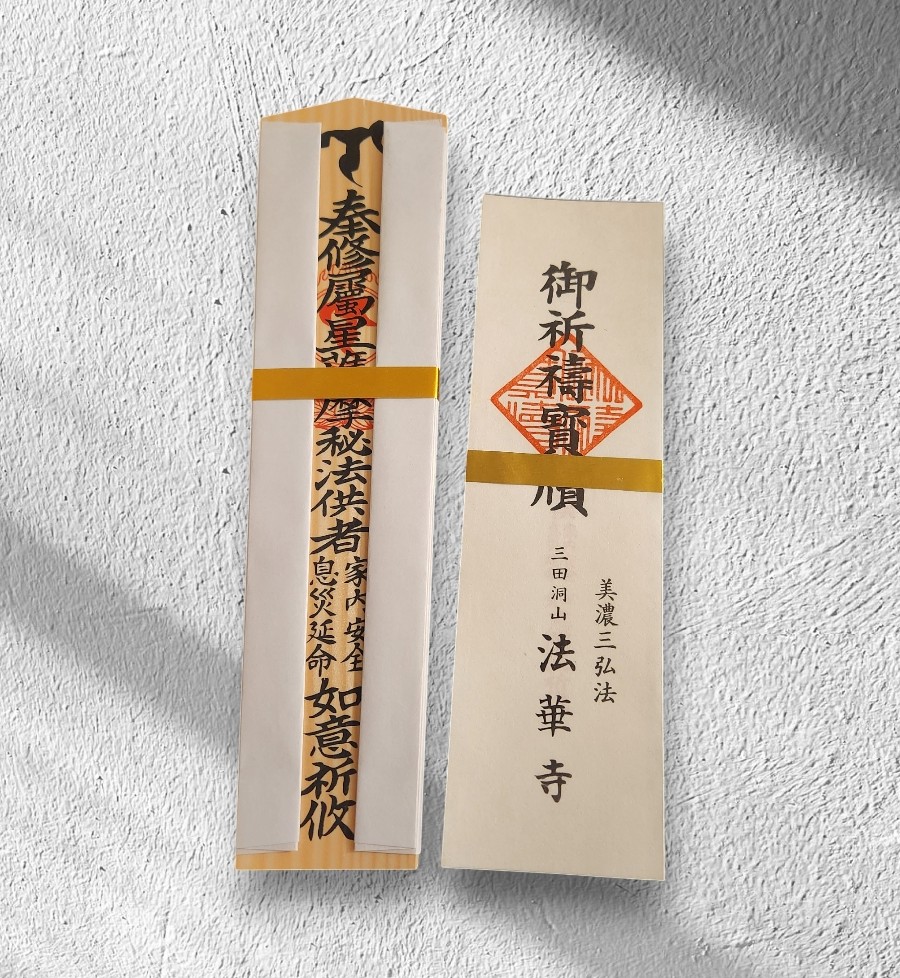 奉修屬星護摩秘法供者
家内安全
息災延命
如意祈攸
御祈禱寶牘
美濃三弘法
三田洞山 法華寺